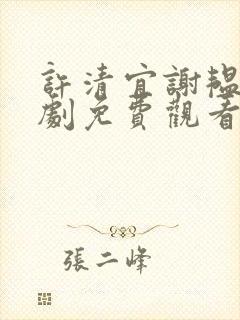 許清宜謝韞
劇免費觀看
張二峰